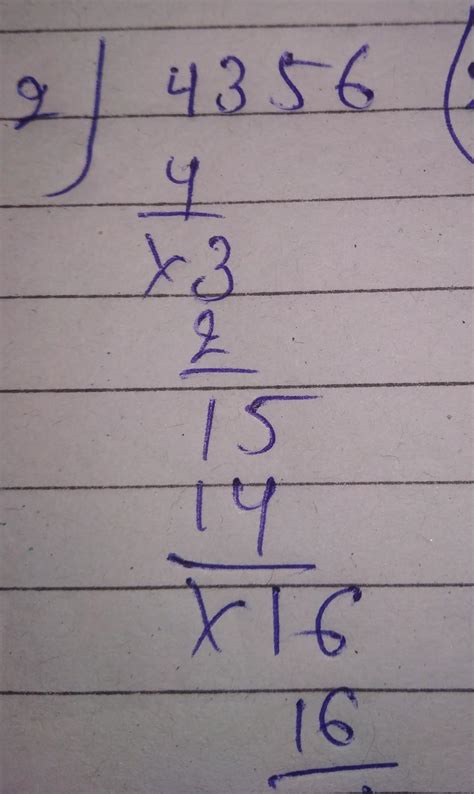 2 ) 4356 (
4
×3
2
15
14
×16
16